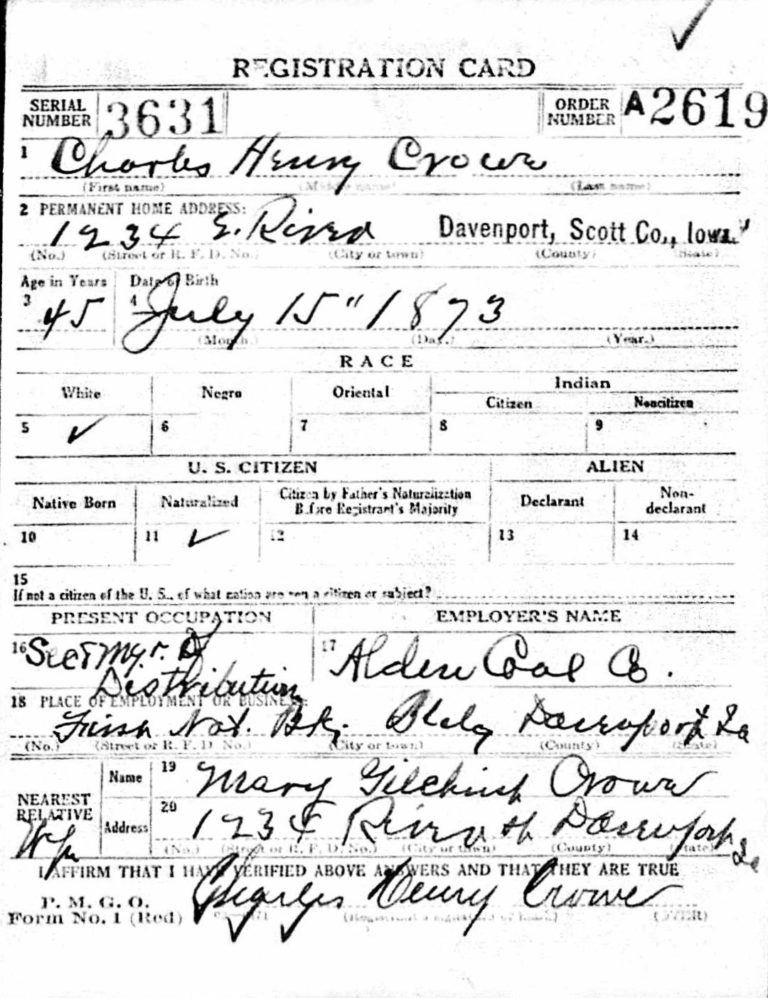 REGISTRATION CARD
SERIAL NUMBER 3631 ORDER NUMBER A2619
1 Charles Henry Crowe
(First name) (Middle name) (Last name)
2 PERMANENT HOME ADDRESS:
1234 E. River Davenport, Scott Co., Iowa
(No.) (Street or R. F. D. No.) (City or town) (County) (State)
Age in Years Date of Birth
3 45 4 July 15" 1873
(Month.) (Day.) (Year.)
RACE
White Negro Oriental Indian
Citizen Noncitizen
5 ✓ 6 7 8 9
U. S. CITIZEN ALIEN
Native Born Naturalized Citizen by Father's Naturalization Before Registrant's Majority Declarant Non-declarant
10 11 ✓ 12 13 14
15
If not a citizen of the U. S., of what nation are you a citizen or subject?
PRESENT OCCUPATION EMPLOYER'S NAME
16 Sec & Mgr. of 17 Alden Coal Co.
Distribution
18 PLACE OF EMPLOYMENT OR BUSINESS:
First Nat. Bk. Bldg Davenport Ia
(No.) (Street or R. F. D. No.) (City or town) (County) (State)
NEAREST RELATIVE Name 19 Mary Gilchrist Crowe
Wife Address 20 1234 River st Davenport Ia
(No.) (Street or R. F. D. No.) (City or town) (County) (State)
I AFFIRM THAT I HAVE VERIFIED ABOVE ANSWERS AND THAT THEY ARE TRUE
P. M. G. O.
Form No. 1 (Red) Charles Henry Crowe
(Registrant's signature or mark) (OVER)